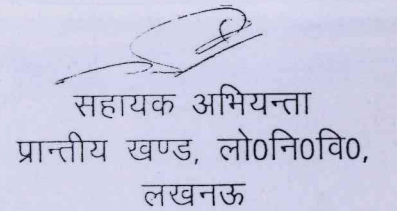 सहायक अभियन्ता
प्रान्तीय खण्ड, लो0नि0वि0,
लखनऊ